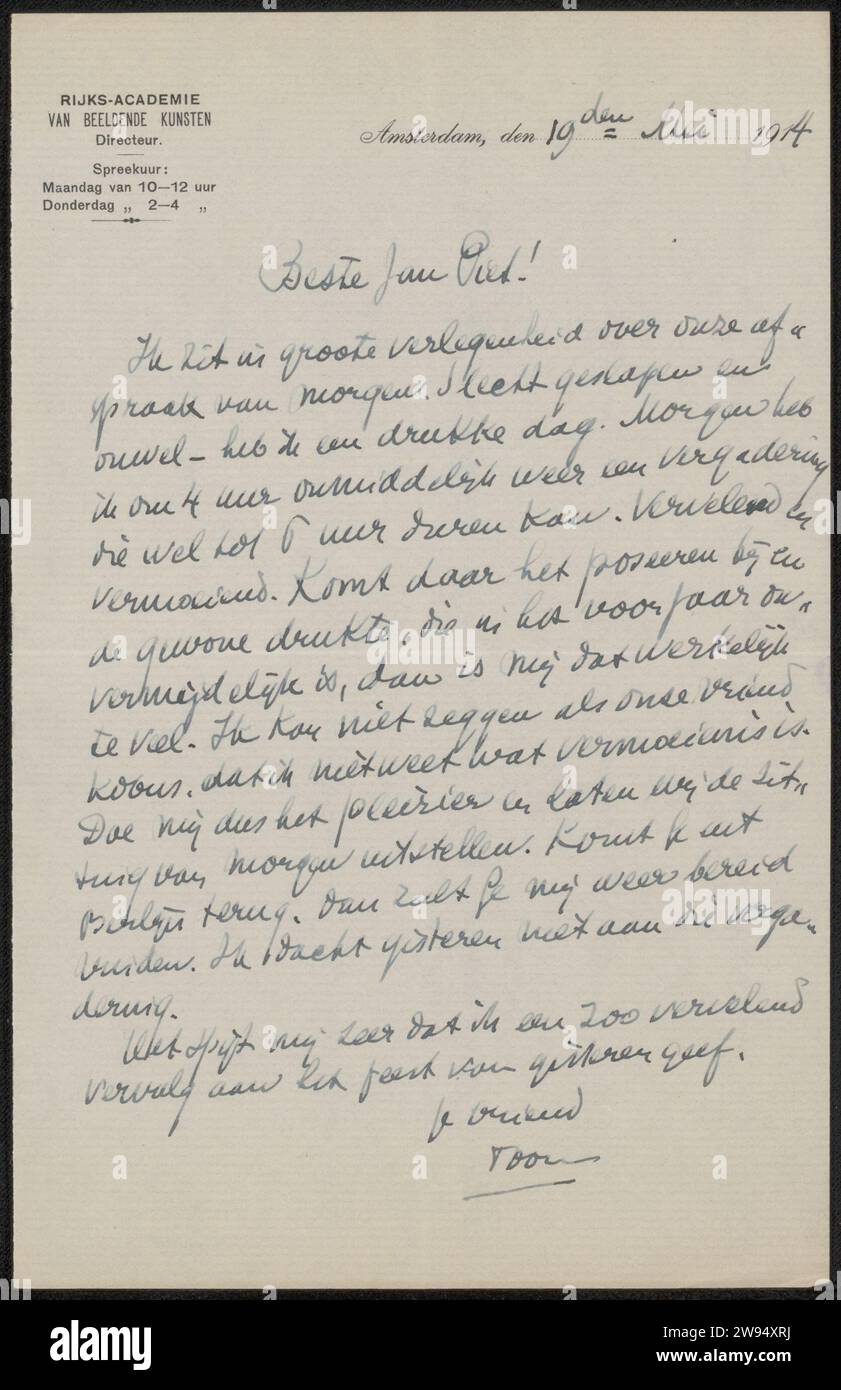 RIJKS-ACADEMIE
VAN BEELDENDE KUNSTEN
Directeur.
Spreekuur:
Maandag van 10—12 uur
Donderdag „ 2—4 „
Amsterdam, den 19den Mei 1914
Beste Jan Piet!
Ik zit in groote verlegenheid over onze af-
spraak van morgen. Slecht geslapen en
onwel – heb ik een drukke dag. Morgen heb
ik om 4 uur onmiddelijk weer een vergadering
die wel tot 6 uur duren kan. Vervelend en
vermoeiend. Komt daar het poseeren bij en
de gewone drukte, die in het voorjaar on-
vermijdelijk is, dan is mij dat werkelijk
te veel. Ik kan niet zeggen als onze vriend
Kobus, dat ik niet weet wat vermoeienis is.
Doe mij dus het pleizier en laten wij de zit-
ting van morgen uitstellen. Komt je uit
Berlijn terug, dan zult je mij weer bereid
vinden. Ik dacht gisteren niet aan die verga-
dering.
Het spijt mij zeer dat ik een zoo vervelend
vervolg aan het feest van gisteren geef.
je vriend
Toon
alamy
2W94XRJ
www.alamy.com